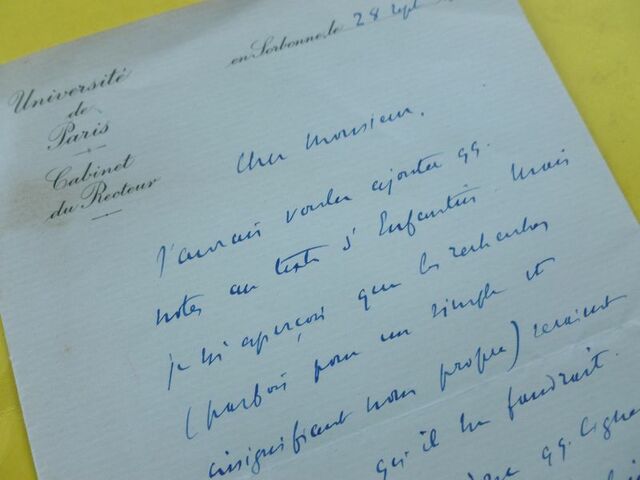 Université
de
Paris
Cabinet
du Recteur
en Sorbonne, le 28 sept
Cher Monsieur,
J'aurais voulu ajouter qq.
notes au texte d'Enfantin. Mais
je m'aperçois que les recherches
(parfois pour un simple et
insignifiant nom propre) seraient
qu'il ne faudrait.
qq. lignes